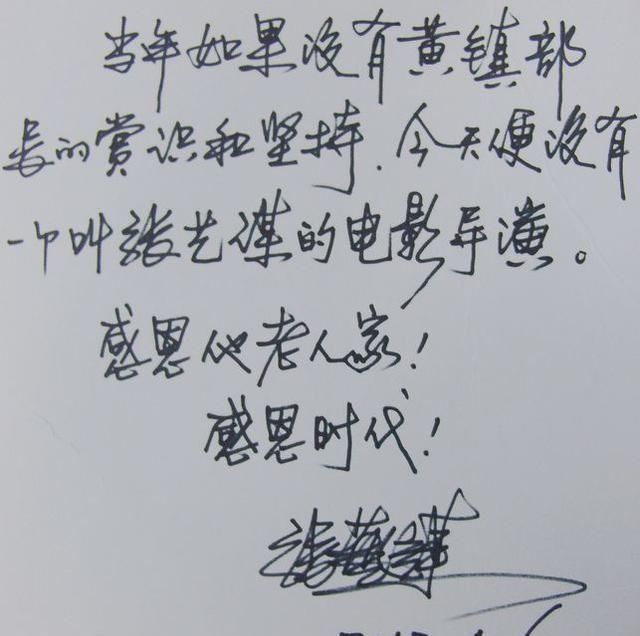 当年如果没有黄镇部
长的赏识和坚持,今天便没有
一个叫张艺谋的电影导演。
感恩他老人家!
感恩时代!
张艺谋